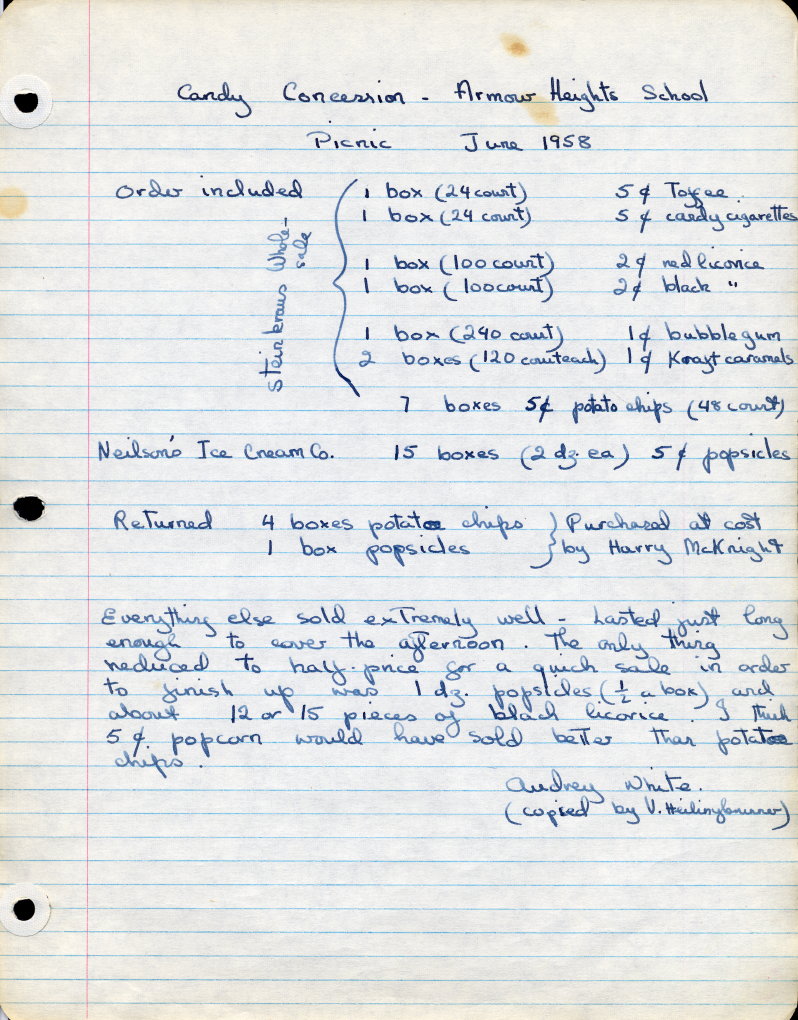 Candy Concession - Armour Heights School
Picnic June 1958
Order included 1 box (24 count) 5¢ Toffee
1 box (24 count) 5¢ candy cigarettes
Steinkraus Whole-
sale
1 box (100 count) 2¢ red licorice
1 box (100 count) 2¢ black "
1 box (240 count) 1¢ bubble gum
2 boxes (120 count each) 1¢ Kraft caramels
7 boxes 5¢ potato chips (48 count)
Neilson's Ice Cream Co. 15 boxes (2 dz. ea) 5¢ popsicles
Returned 4 boxes potatoe chips } Purchased at cost
1 box popsicles } by Harry McKnight
Everything else sold extremely well - lasted just long
enough to cover the afternoon. The only thing
reduced to half-price for a quick sale in order
to finish up was 1 dz. popsicles (½ a box) and
about 12 or 15 pieces of black licorice. I think
5¢ popcorn would have sold better than potatoe
chips.
Audrey White.
(copied by V.